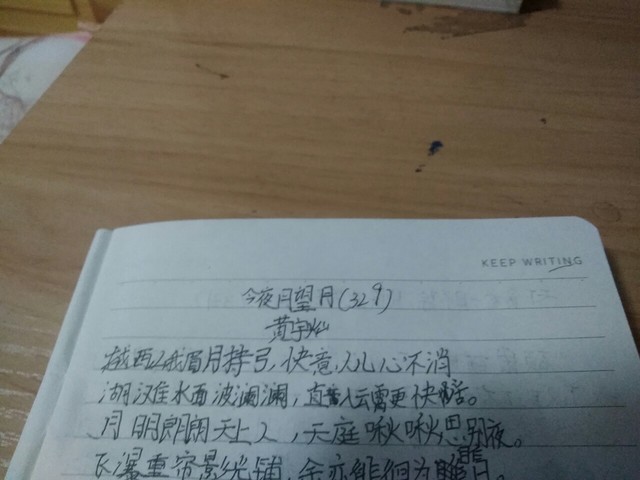 KEEP WRITING
今夜月望月(329)
黄宇
西峨眉月持弓,快意人儿心不消
湖水面波澜澜,直入云霄更快活。
月明朗朗闹天上人,天庭啾啾思别夜。
飞瀑重帘景光铺,余亦能徊为